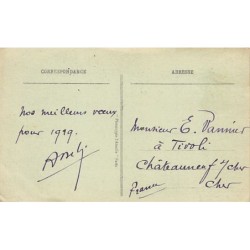 CORRESPONDANCE
ADRESSE
Nos meilleurs vœux
pour 1919.
Monsieur E. Pannier
à Tivoli
Châteauneuf s/cher
Cher
France